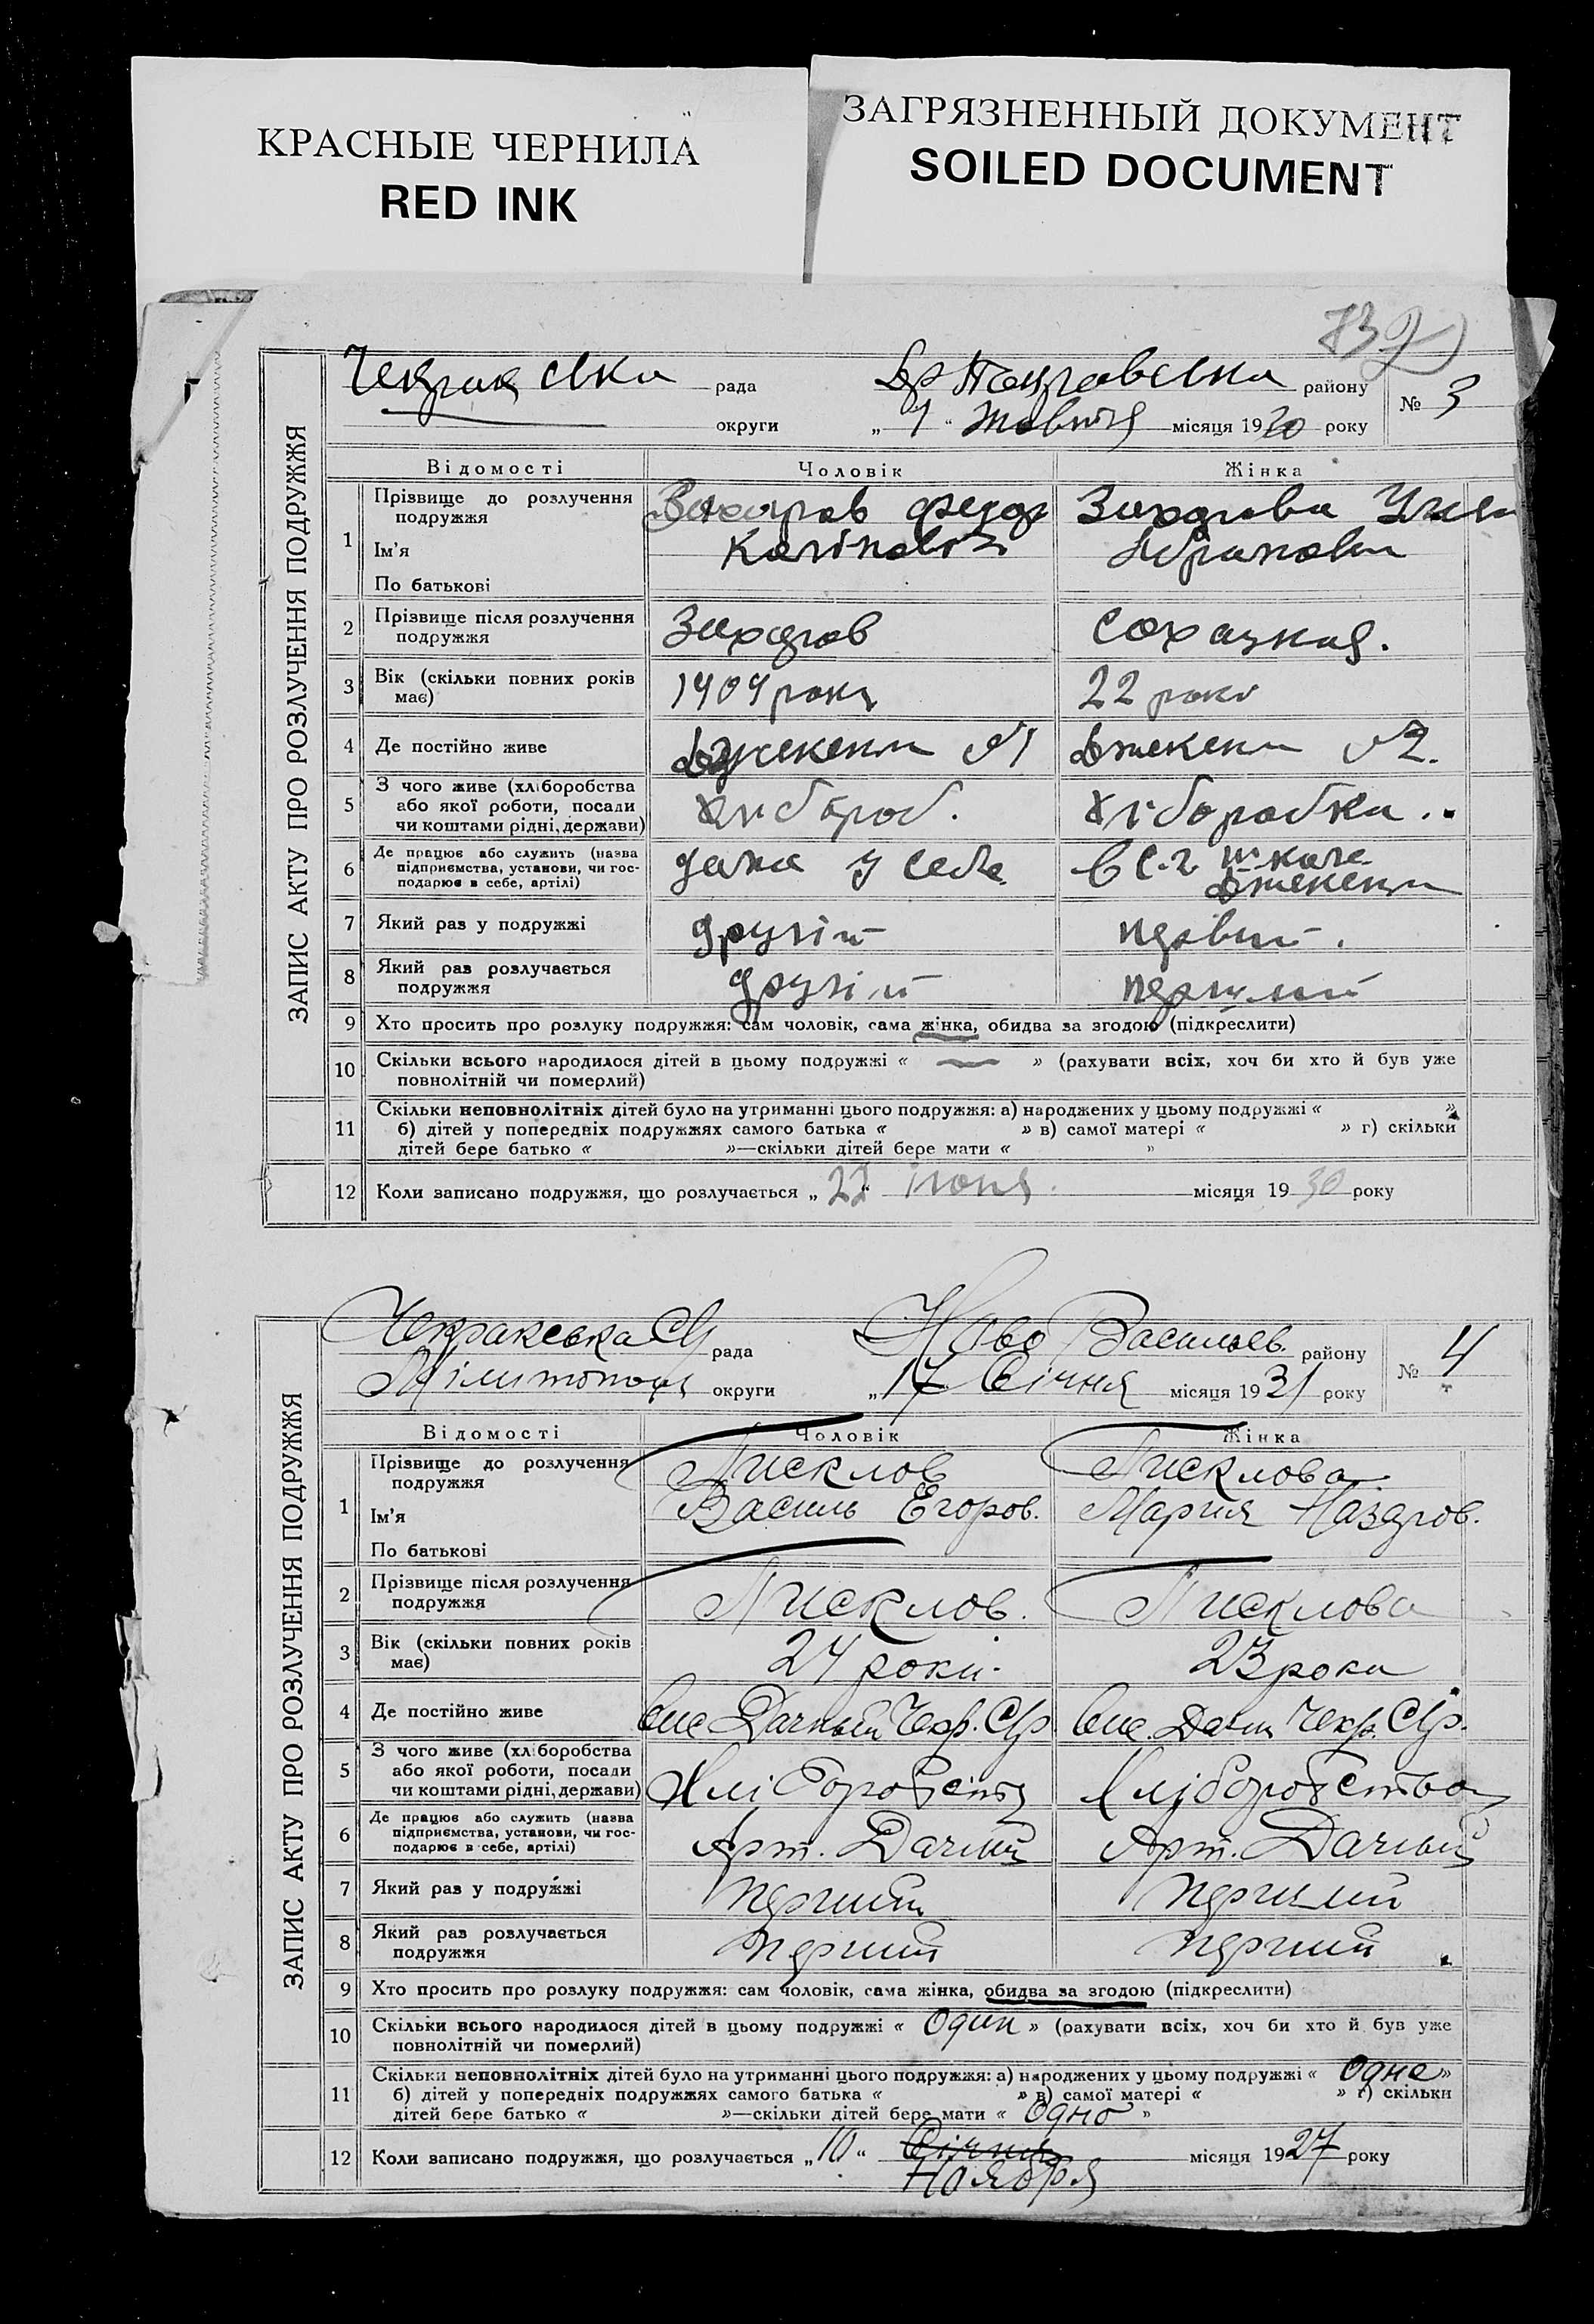 КРАСНЫЕ ЧЕРНИЛА
RED INK
ЗАГРЯЗНЕННЫЙ ДОКУМЕНТ
SOILED DOCUMENT
ЗАПИС АКТУ ПРО РОЗЛУЧЕННЯ ПОДРУЖЖЯ
рада району № 3
округи „ 1 “ Жовтня місяця 1930 року
Відомості Чоловік Жінка
1 Прізвище до розлучення
подружжя
Ім'я
По батькові
Захаров
Захарова
2 Прізвище після розлучення
подружжя
Захаров
Сохацкая.
3 Вік (скільки повних років
має)
22 роки
4 Де постійно живе
Джекени №1 Джекени №2.
5 З чого живе (хліборобства
або якої роботи, посади
чи коштами рідні, держави)
хлібороб. хліборобка
6 Де працює або служить (назва
підприємства, установи, чи гос-
подарює в себе, артілі)
дома у себе
в С.г. школе
Джекени
7 Який раз у подружжі
другій
8 Який раз розлучається
подружжя
другій перший
9 Хто просить про розлуку подружжя: сам чоловік, сама жінка, обидва за згодою (підкреслити)
10 Скільки всього народилося дітей в цьому подружжі « — » (рахувати всіх, хоч би хто й був уже
повнолітній чи померлий)
11 Скільки неповнолітніх дітей було на утриманні цього подружжя: а) народжених у цьому подружжі « »
б) дітей у попередніх подружжях самого батька « » в) самої матері « » г) скільки
дітей бере батько « »—скільки дітей бере мати « »
12 Коли записано подружжя, що розлучається „ “ місяця 1930 року
ЗАПИС АКТУ ПРО РОЗЛУЧЕННЯ ПОДРУЖЖЯ
Чекракська рада Ново Васильев. району № 4
округи „17 Січня місяця 1931 року
Відомості Чоловік Жінка
1 Прізвище до розлучення
подружжя
Ім'я
По батькові
Писклов Писклова
Василь Егоров. Мария Назаров.
2 Прізвище після розлучення
подружжя
Писклов. Писклова
3 Вік (скільки повних років
має)
24 роки. 23 роки
4 Де постійно живе
Дачный Чекр. С/р
Чекр. С/р.
5 З чого живе (хліборобства
або якої роботи, посади
чи коштами рідні, держави)
Хліборобство
6 Де працює або служить (назва
підприємства, установи, чи гос-
подарює в себе, артілі)
Арт. Дачный Арт. Дачный
7 Який раз у подружжі
перший перший
8 Який раз розлучається
подружжя
перший перший
9 Хто просить про розлуку подружжя: сам чоловік, сама жінка, обидва за згодою (підкреслити)
10 Скільки всього народилося дітей в цьому подружжі « Один » (рахувати всіх, хоч би хто й був уже
повнолітній чи померлий)
11 Скільки неповнолітніх дітей було на утриманні цього подружжя: а) народжених у цьому подружжі « Одно »
б) дітей у попередніх подружжях самого батька « » в) самої матері « » г) скільки
дітей бере батько « »—скільки дітей бере мати « Одно »
12 Коли записано подружжя, що розлучається „10“ Січня місяця 1927 року
Ноября